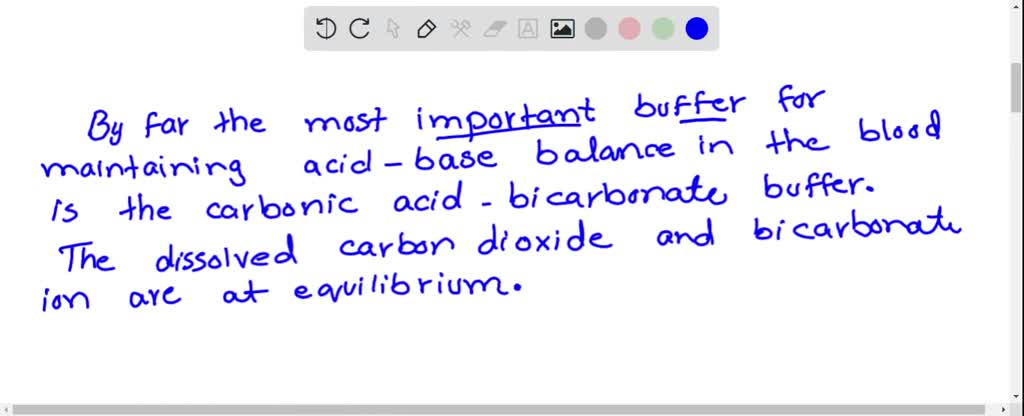 By far the most important buffer for
maintaining acid-base balance in the blood
is the carbonic acid-bicarbonate buffer.
The dissolved carbon dioxide and bicarbonate
ion are at equilibrium.